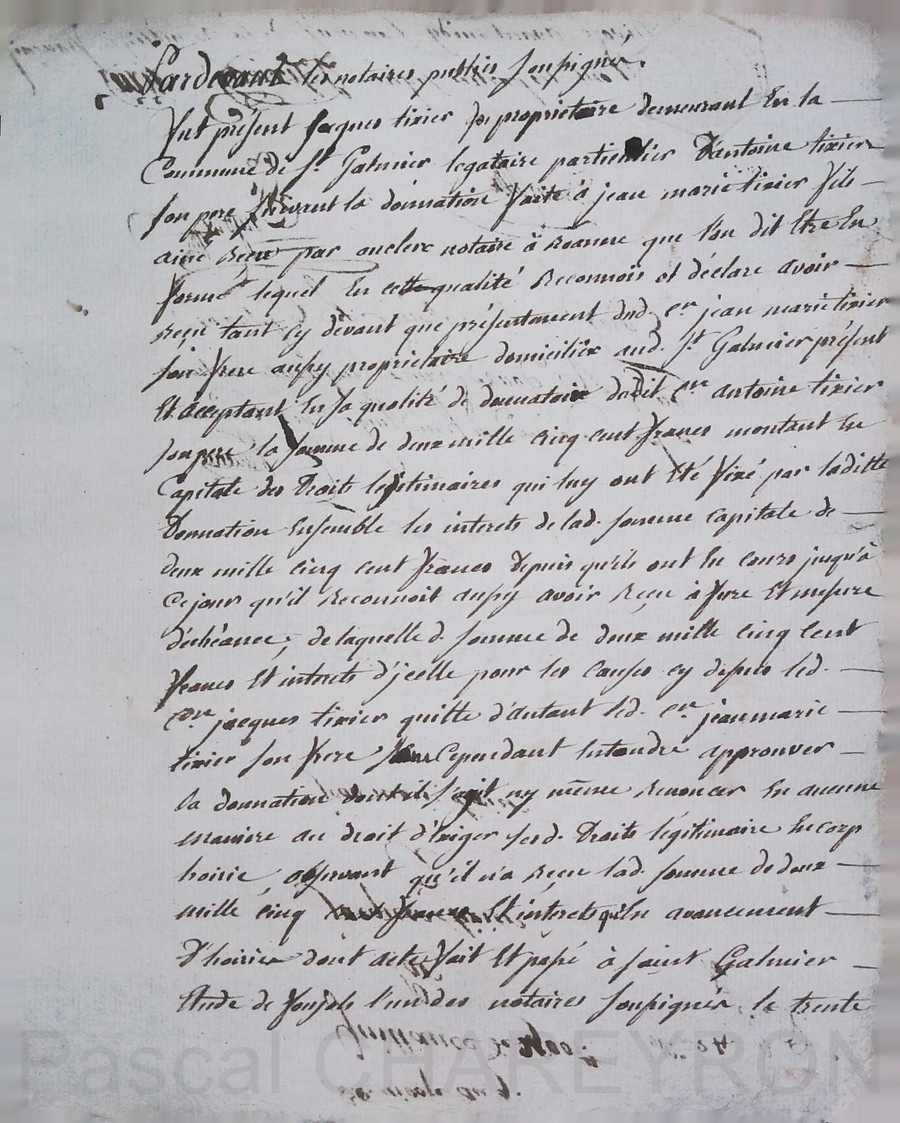 Pardevant les notaires publics soussignés.
fut présent Jacques tixier propriétaire demeurant En la
Commune de St. Galmier legataire particulier d'antoine tixier
son pere suivant la donnation faite à jean marie tixier fils
ainé reçue par anclerc notaire à Roanne que l'on dit Etre En
forme lequel En cette qualité Reconnois et déclare avoir
reçu tant cy dévant que présentement dud. cen jean marie tixier
son frere aussy propriétaire domicilié aud. St Galmier présent
Et acceptant En sa qualité de donnataire dudit cen antoine tixier
son pere la somme de deux mille cinq cent francs montant En
Capitale des Droits legitimaires qui luy ont Eté fixé par laditte
Donnation Ensemble les interets de lad. somme capitale de
deux mille cinq cent francs Depuis qu'ils ont Eu cours jusqu'à
Ce jour qu'il Reconnoit aussy avoir Reçu à fure Et mesure
d'échéance, de laquelle d. somme de deux mille cinq Cent
francs Et interets d'jcelle pour les Causes cy dessus led.
cen jacques tixier quitte d'autant led. cen jean marie
tixier son frere sans Cependant Entendre approuver
la donnation dont il s'agit ny même Renoncer En aucune
maniere au droit d'Exiger sesd. Droits légitimaire En corp
hoirie, observant qu'il n'a Reçu lad. somme de deux
mille cinq cent francs Et interets qu'En avancement
D'hoirie dont acte, fait Et passé à saint Galmier
Etude de l'un des notaires soussignés le trente
Quittance de 2500
Pascal CHAREYRON